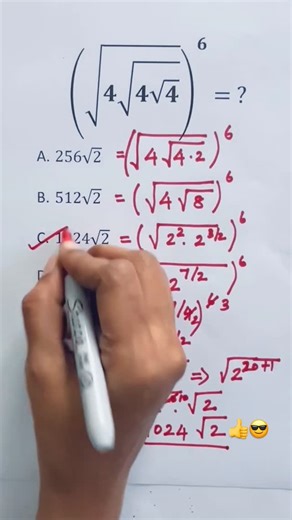 (√4√4√4)⁶ = ?
A. 256√2 = (√4√4·2)⁶
B. 512√2 = (√4√8)⁶
C. 24√2 = (√2²·2^3/2)⁶
2^7/2)⁶
3
⇒ √2^20+1
√2
024 √2 👍😎